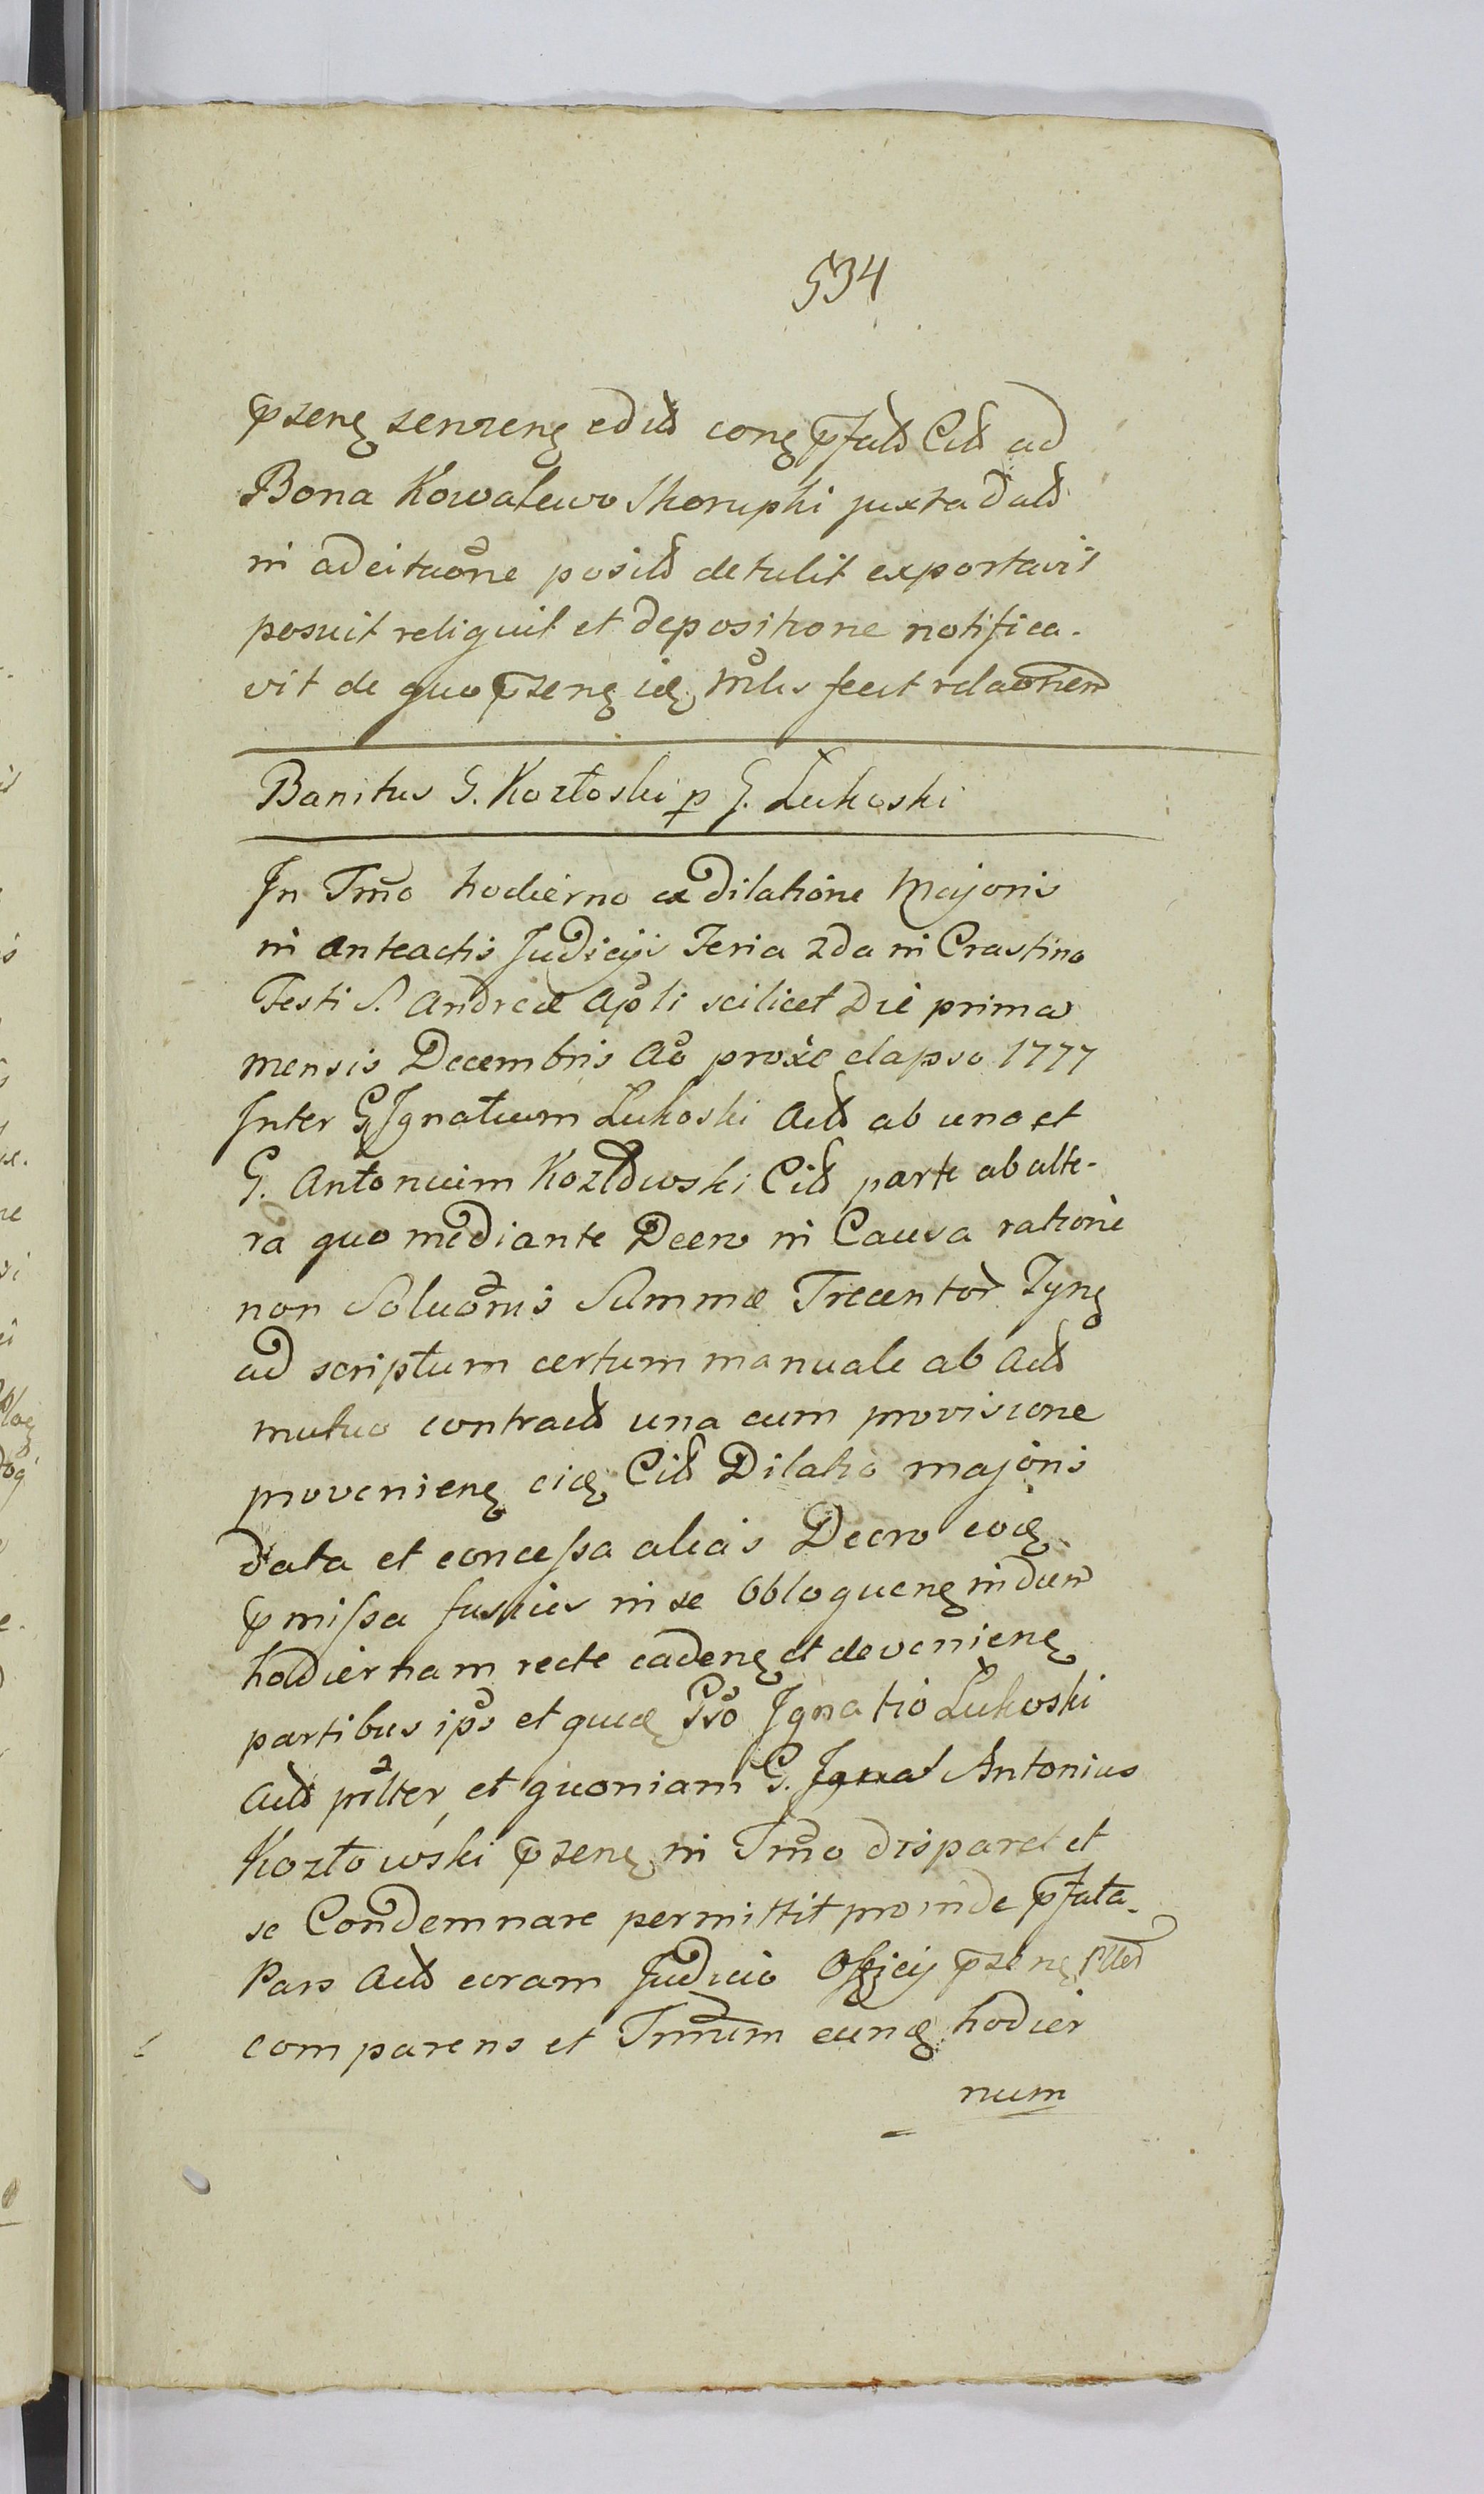 534
pzenę senzenę edit conę pfatt Citt ad
Bona Kowalewo Skorupki juxta datt
in adcitaone positt detulit exportavit
posuit reliquit et depositione notifica-
vit de quo pzenę idę Mlis fecit relaonem
Banitus G. Kozłoski p G. Łukoski
In Tmo hodierno ex dilatione Majoris
in anteactis Judicijs Feria 2da in Crastino
Festi S. Andreæ Apli scilicet Die prima
mensis Decembris Ao proxe elapso 1777
Inter G. Ignatium Łukoski Actt ab una et
G. Antonium Kozłowski Citt parte ab alte-
ra quo mediante Decro in Causa ratione
non Soluonis Summæ Trecentor Tynę
ad scriptum certum manuale ab Actt
mutuo contractt una cum provisione
provenienę eidę Citt Dilatio majoris
data et concessa alias Decro eodę
pmissa fusius in se obloquenę in diem
hodiernam recte cadenę et devenienę
partibus ips et quidę Gso Ignatio Łukoski
Actt pnlter, et quoniam G. Ignat Antonius
Kozłowski pzenę in Tmo disparet et
se Condemnare permittit proinde pfata
Pars Actt coram Judicio Officij pzenę
comparens et Tmnum eundę hodier
num